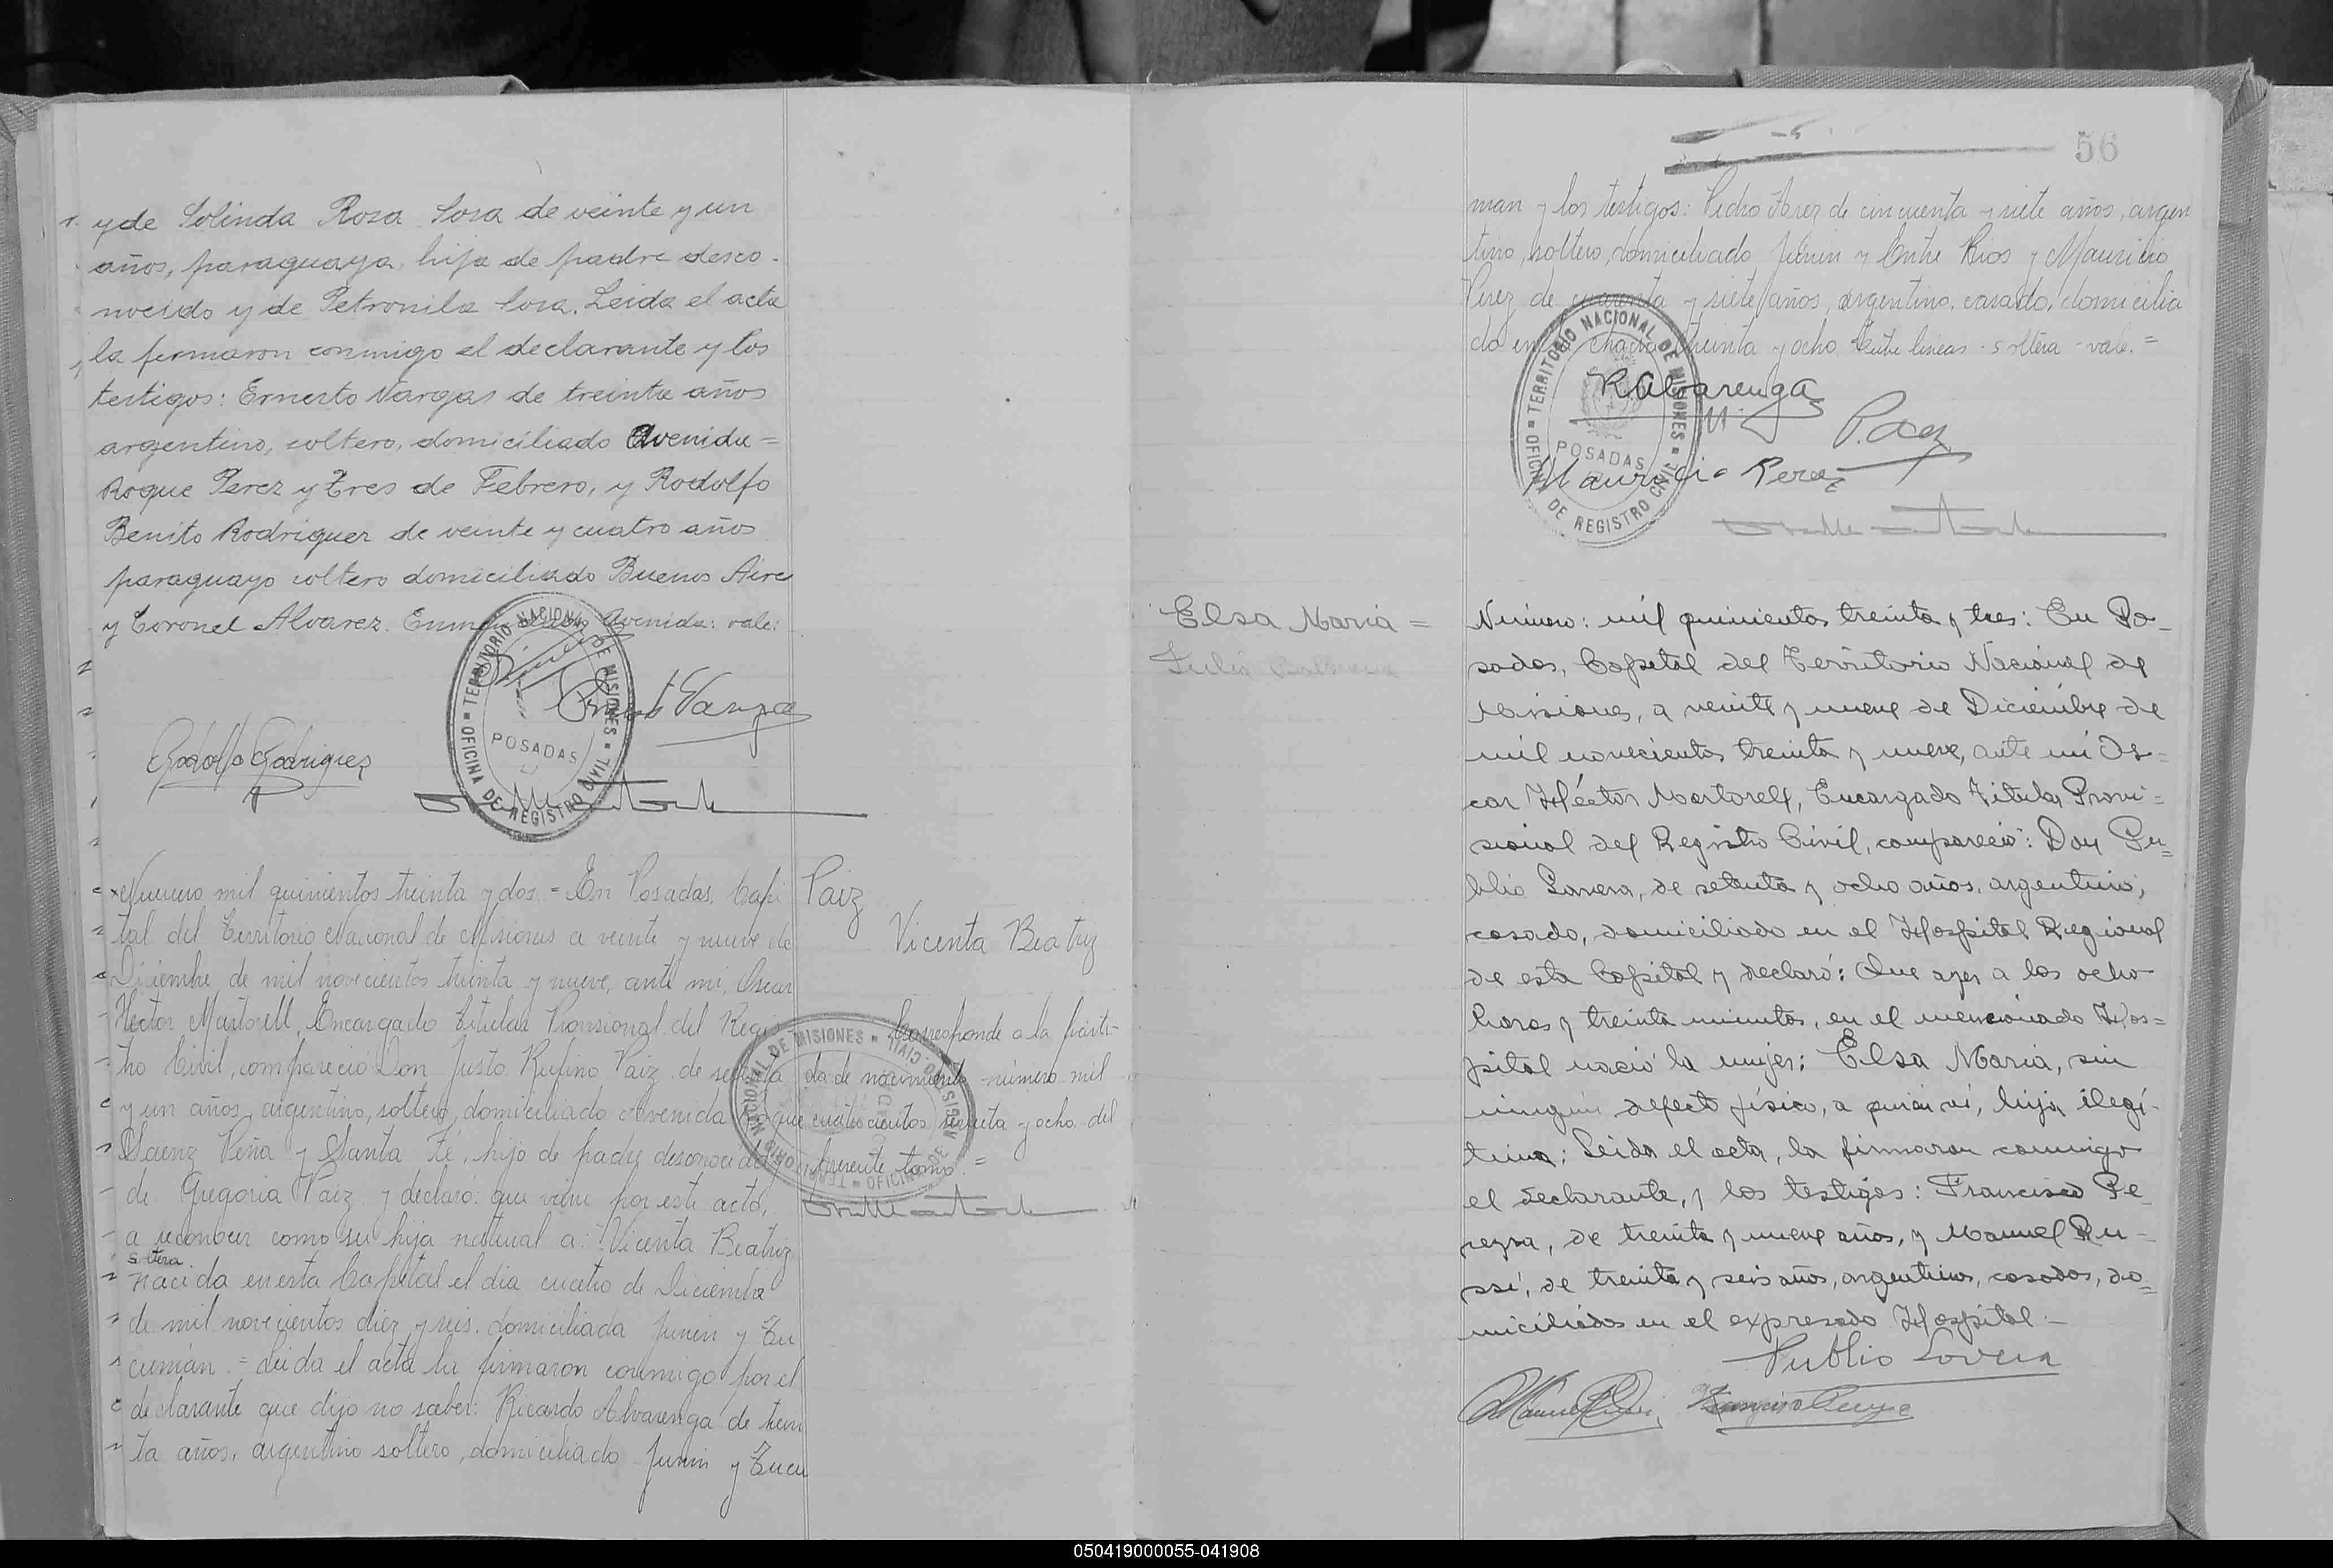 y de Solinda Rosa Sosa de veinte y un
años, paraguaya, hija de padre desco-
nocido y de Petronila Sosa. Leida el acta
la firmaron conmigo el declarante y los
testigos: Ernesto Vargas de treinta años
argentino, soltero, domiciliado Avenida =
Roque Perez y Tres de Febrero, y Rodolfo
Benito Rodriguez de veinte y cuatro años
paraguayo soltero domiciliado Buenos Aires
y Coronel Alvarez. Avenida: vale:
TERRITORIO NACIONAL DE MISIONES
POSADAS
OFICINA DE REGISTRO CIVIL
Ernesto Vargas
Rodolfo Rodriguez
Numero mil quinientos treinta y dos = En Posadas, Capi
tal del Territorio Nacional de Misiones a veinte y nueve de
Diciembre de mil novecientos treinta y nueve, ante mi, Oscar
Hector Martorell, Encargado Titular Provisional del Regis-
tro Civil, compareció Don Justo Rufino Paiz de
y un años, argentino, soltero, domiciliado Avenida Roque
Saenz Peña y Santa Fé, hijo de padre desconocido y
de Gregoria Paiz y declaró: que viene por este acto,
a reconocer como su hija natural a: Vicenta Beatriz
soltera
nacida en esta Capital el dia cuatro de Diciembre
de mil novecientos diez y seis, domiciliada Junin y Tu
cumán. = Leida el acta la firmaron conmigo por el
declarante que dijo no saber: Ricardo Alvarenga de trein
ta años, argentino soltero, domiciliado Junin y Tucu
Paiz
Vicenta Beatriz
Corresponde a la parti-
da de nacimiento número mil
cuatrocientos y ocho, del
presente tomo. =
TERRITORIO NACIONAL DE MISIONES
OFICINA DE REGISTRO CIVIL
56
man y los testigos: Pedro Paez de cincuenta y siete años, argen
tino, soltero, domiciliado Junin y Entre Rios y Mauricio
Perez de cuarenta y siete años, argentino, casado, domicilia
do en chacra treinta y ocho. Entre lineas - soltera - vale. =
TERRITORIO NACIONAL DE MISIONES
POSADAS
OFICINA DE REGISTRO CIVIL
R Alvarenga
P. Paez
Mauricio Perez
Elsa Maria =
Numero: mil quinientos treinta y tres: En Po-
sadas, Capital del Territorio Nacional de
Misiones, a veinte y nueve de Diciembre de
mil novecientos treinta y nueve, ante mi Os-
car Héctor Martorell, Encargado Titular Provi=
sional del Registro Civil, compareció: Don Pu=
blio Lovera, de setenta y ocho años, argentino,
casado, domiciliado en el Hospital Regional
de esta Capital y declaró: Que ayer a las ocho
horas y treinta minutos, en el mencionado Hos=
pital nació la mujer: Elsa Maria, sin
ningun defecto físico, a quien vi, hija ilegí-
tima: Leida el acta, la firmaron conmigo
el declarante, y los testigos: Francisco Pe-
reyra, de treinta y nueve años, y Manuel Ru-
ssi, de treinta y seis años, argentinos, casados, do=
miciliados en el expresado Hospital. -
Publio Lovera
050419000055-041908